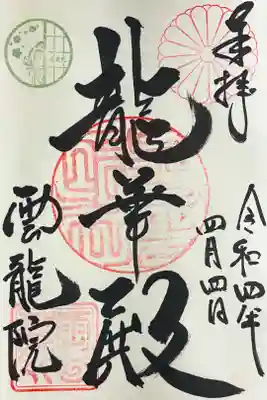 奉拝
令和四年
四月四日
龍華殿
雲龍院